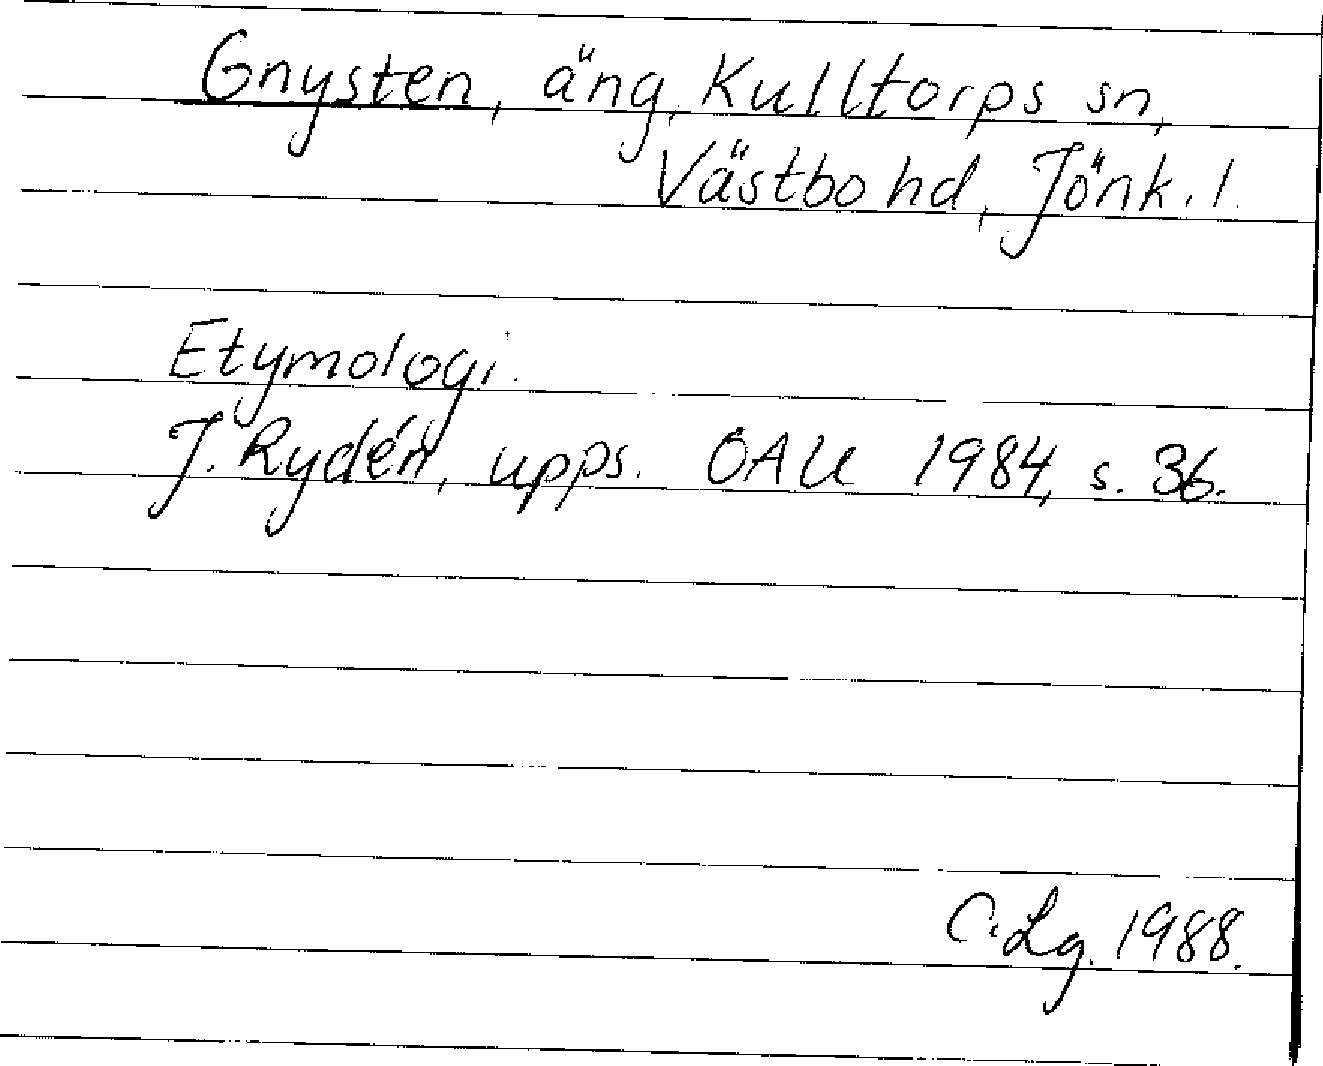 Gnysten, äng, Kulltorps sn,
Västbo hd, Jönk. l.
Etymologi.
J. Rydén, upps. OAU 1984, s. 36.
C. Lg. 1988.